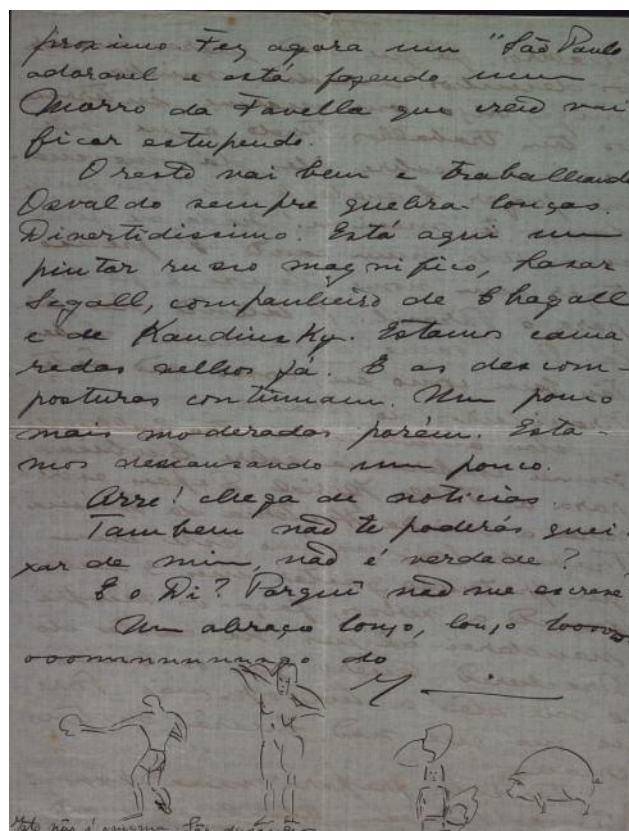 proximo. Fez agora um "São Paulo
adoravel e está fazendo um
Morro da Favella que creio vai
ficar estupendo.
O resto vai bem e trabalhando
Osvaldo sempre quebra-louças.
Divertidissimo. Está aqui um
pintor russo magnifico, Lasar
Segall, companheiro de Chagall
e de Kandinsky. Estamos cama
radas velhos já. E as descom-
posturas continuam. Um pouco
mais moderadas porém. Esta-
mos descansando um pouco.
Arre! chega de noticias.
Tambem não te poderás quei-
xar de mim, não é verdade?
E o Di? Porquê não me escreve
Um abraço longo, longo looooo
ooonnnnnnnngo do
M
Isto não é enigma. São